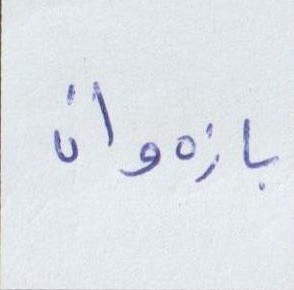 بازەوان